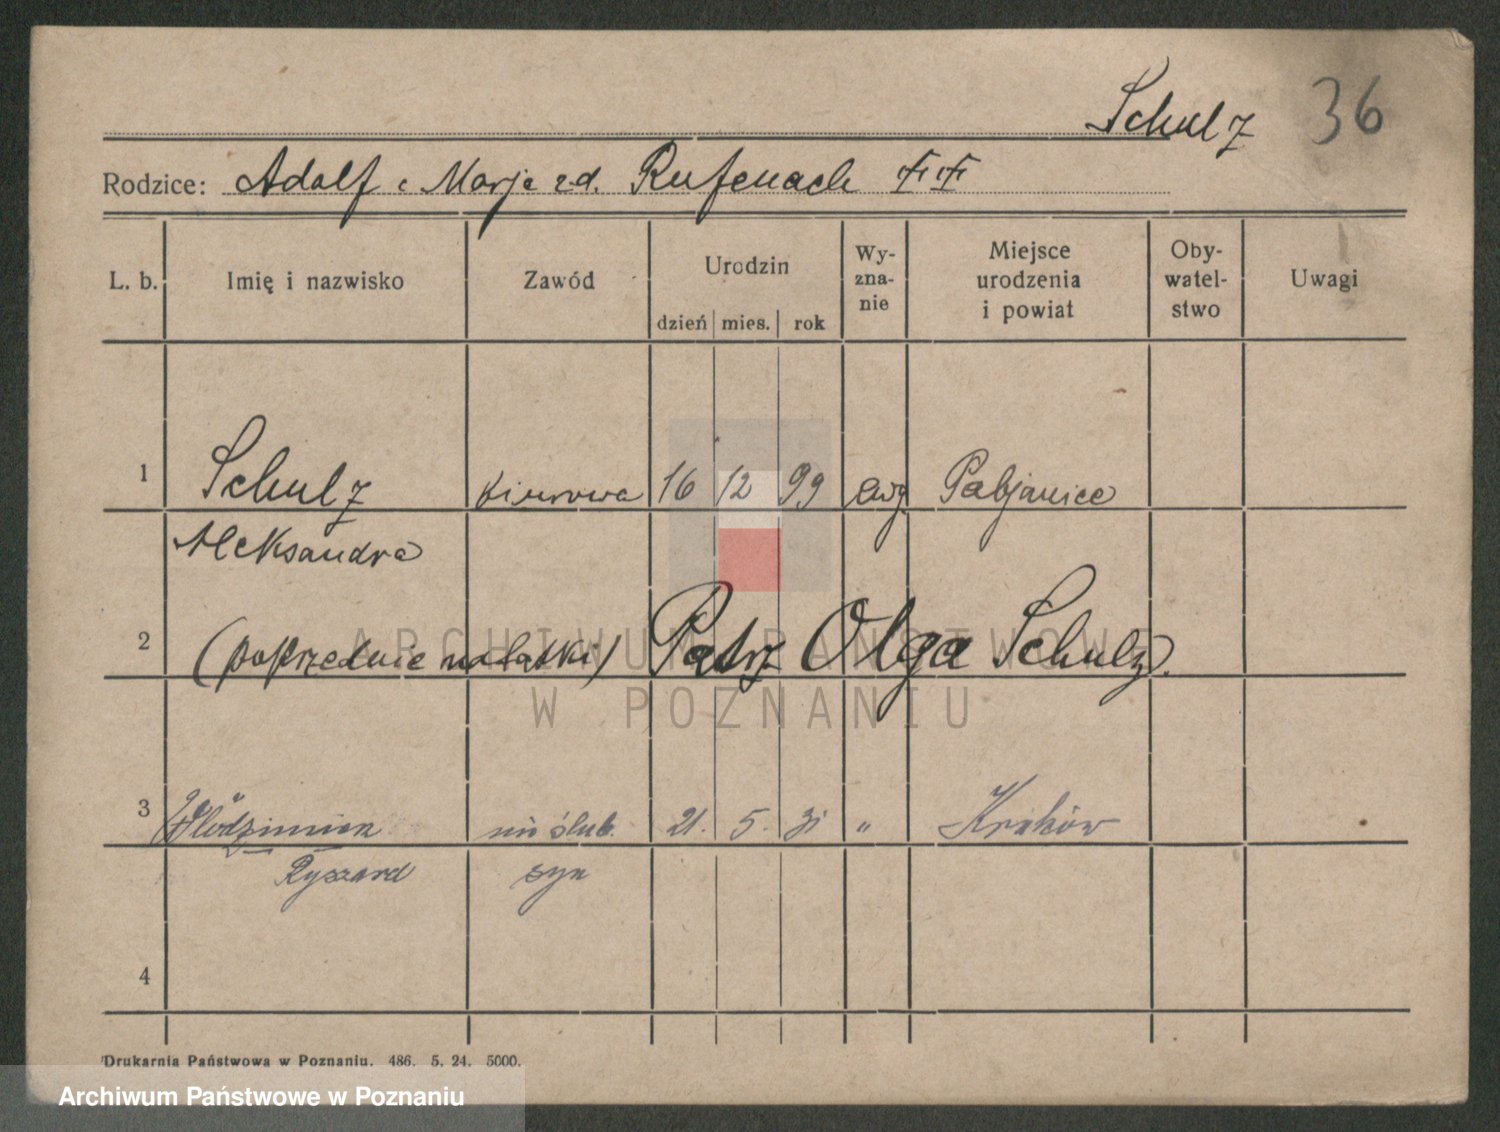 Schulz 36
Rodzice: Adolf i Marja zd. Rufenach
L. b. Imię i nazwisko Zawód Urodzin dzień mies. rok Wy- zna- nie Miejsce urodzenia i powiat Oby- watel- stwo Uwagi
1 Schulz 16 12 99 ewg. Pabjanice
Aleksandra
2 (poprzednie Patrz Olga Schulz.
3 Włodzimierz nieślub. 21. 5. 31 " Kraków
Ryszard syn
4
Drukarnia Państwowa w Poznaniu. 486. 5. 24. 5000.
ARCHIWUM PAŃSTWOWE
W POZNANIU
Archiwum Państwowe w Poznaniu